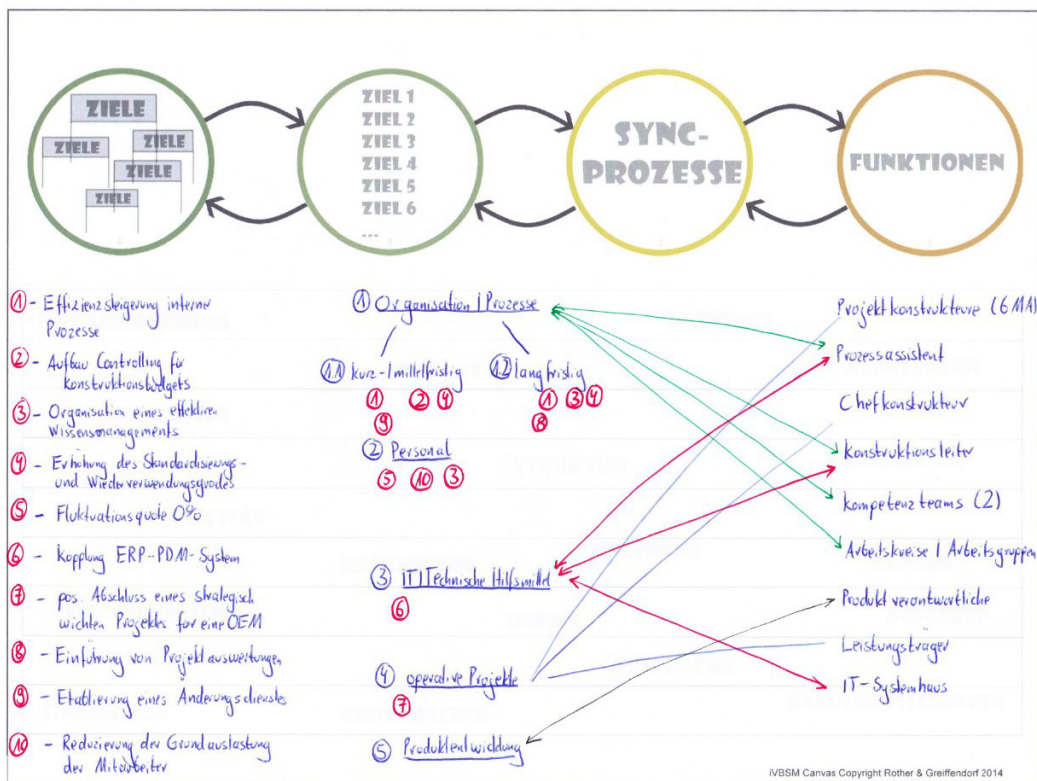 ZIELE
ZIELE
ZIELE
ZIELE
ZIELE
ZIEL 1
ZIEL 2
ZIEL 3
ZIEL 4
ZIEL 5
ZIEL 6
...
SYNC-
PROZESSE
FUNKTIONEN
① - Effizienzsteigerung interner
Prozesse
② - Aufbau Controlling für
Konstruktionsbudgets
③ - Organisation eines effektiven
Wissensmanagements
④ - Erhöhung des Standardisierungs-
und Wiederverwendungsgrades
⑤ - Fluktuationsquote 0%
⑥ - Kopplung ERP-PDM-System
⑦ - pos. Abschluss eines strategisch
wichten Projektes für eine OEM
⑧ - Einführung von Projektauswertungen
⑨ - Etablierung eines Änderungsdienstes
⑩ - Reduzierung der Grundauslastung
der Mitarbeiter
① Organisation | Prozesse
1.1 kurz-/mittelfristig
① ② ④
⑨
1.2 langfristig
① ③ ④
⑧
② Personal
⑤ ⑩ ③
③ IT/Technische Hilfsmittel
⑥
④ operative Projekte
⑦
⑤ Produktentwicklung
Projektkonstrukteure (6MA)
Prozessassistent
Chefkonstrukteur
Konstruktionsleiter
Kompetenzteams (2)
Arbeitskreise / Arbeitsgruppen
Produktverantwortliche
Leistungsträger
IT-Systemhaus
iVBSM Canvas Copyright Rother & Greiffendorf 2014